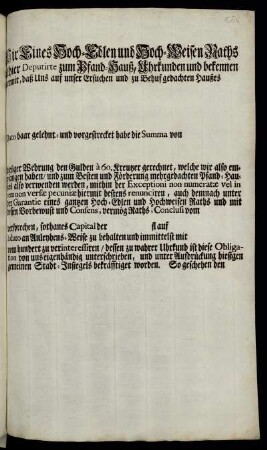 Wir Eines Hoch-Edlen und Hoch-Weisen Raths
allhier Deputirte zum Pfand-Hauß, Uhrkunden und bekennen
hiermit, daß Uns auf unser Ersuchen und zu Behuf gedachten Haußes
dato baar gelehnt- und vorgestrecket habe die Summa von
Wehrung den Gulden à 60. Kreutzer gerechnet, welche wir also em-
pfangen haben/ und zum Besten und Förderung mehrgedachten Pfand-Hau-
ses also verwenden werden, mithin der Exceptioni non numeratæ vel in
rem non versæ pecuniæ hiermit bestens renunciren, auch demnach unter
der Garantie eines gantzen Hoch-Edlen und Hochweisen Raths und mit
dessen Vorbewust und Consens, vermög Raths-Conclusi vom
versprechen, sothanes Capital der fl auf
dato an Anlehens-Weise zu behalten und immittelst mit
vom hundert zu verinteressiren/ dessen zu wahrer Uhrkund ist diese Obliga-
tion von uns eigenhändig unterschrieben, und unter Aufdrückung hiesigen
gemeinen Stadt-Insiegels bekräfftiget worden. So geschehen den